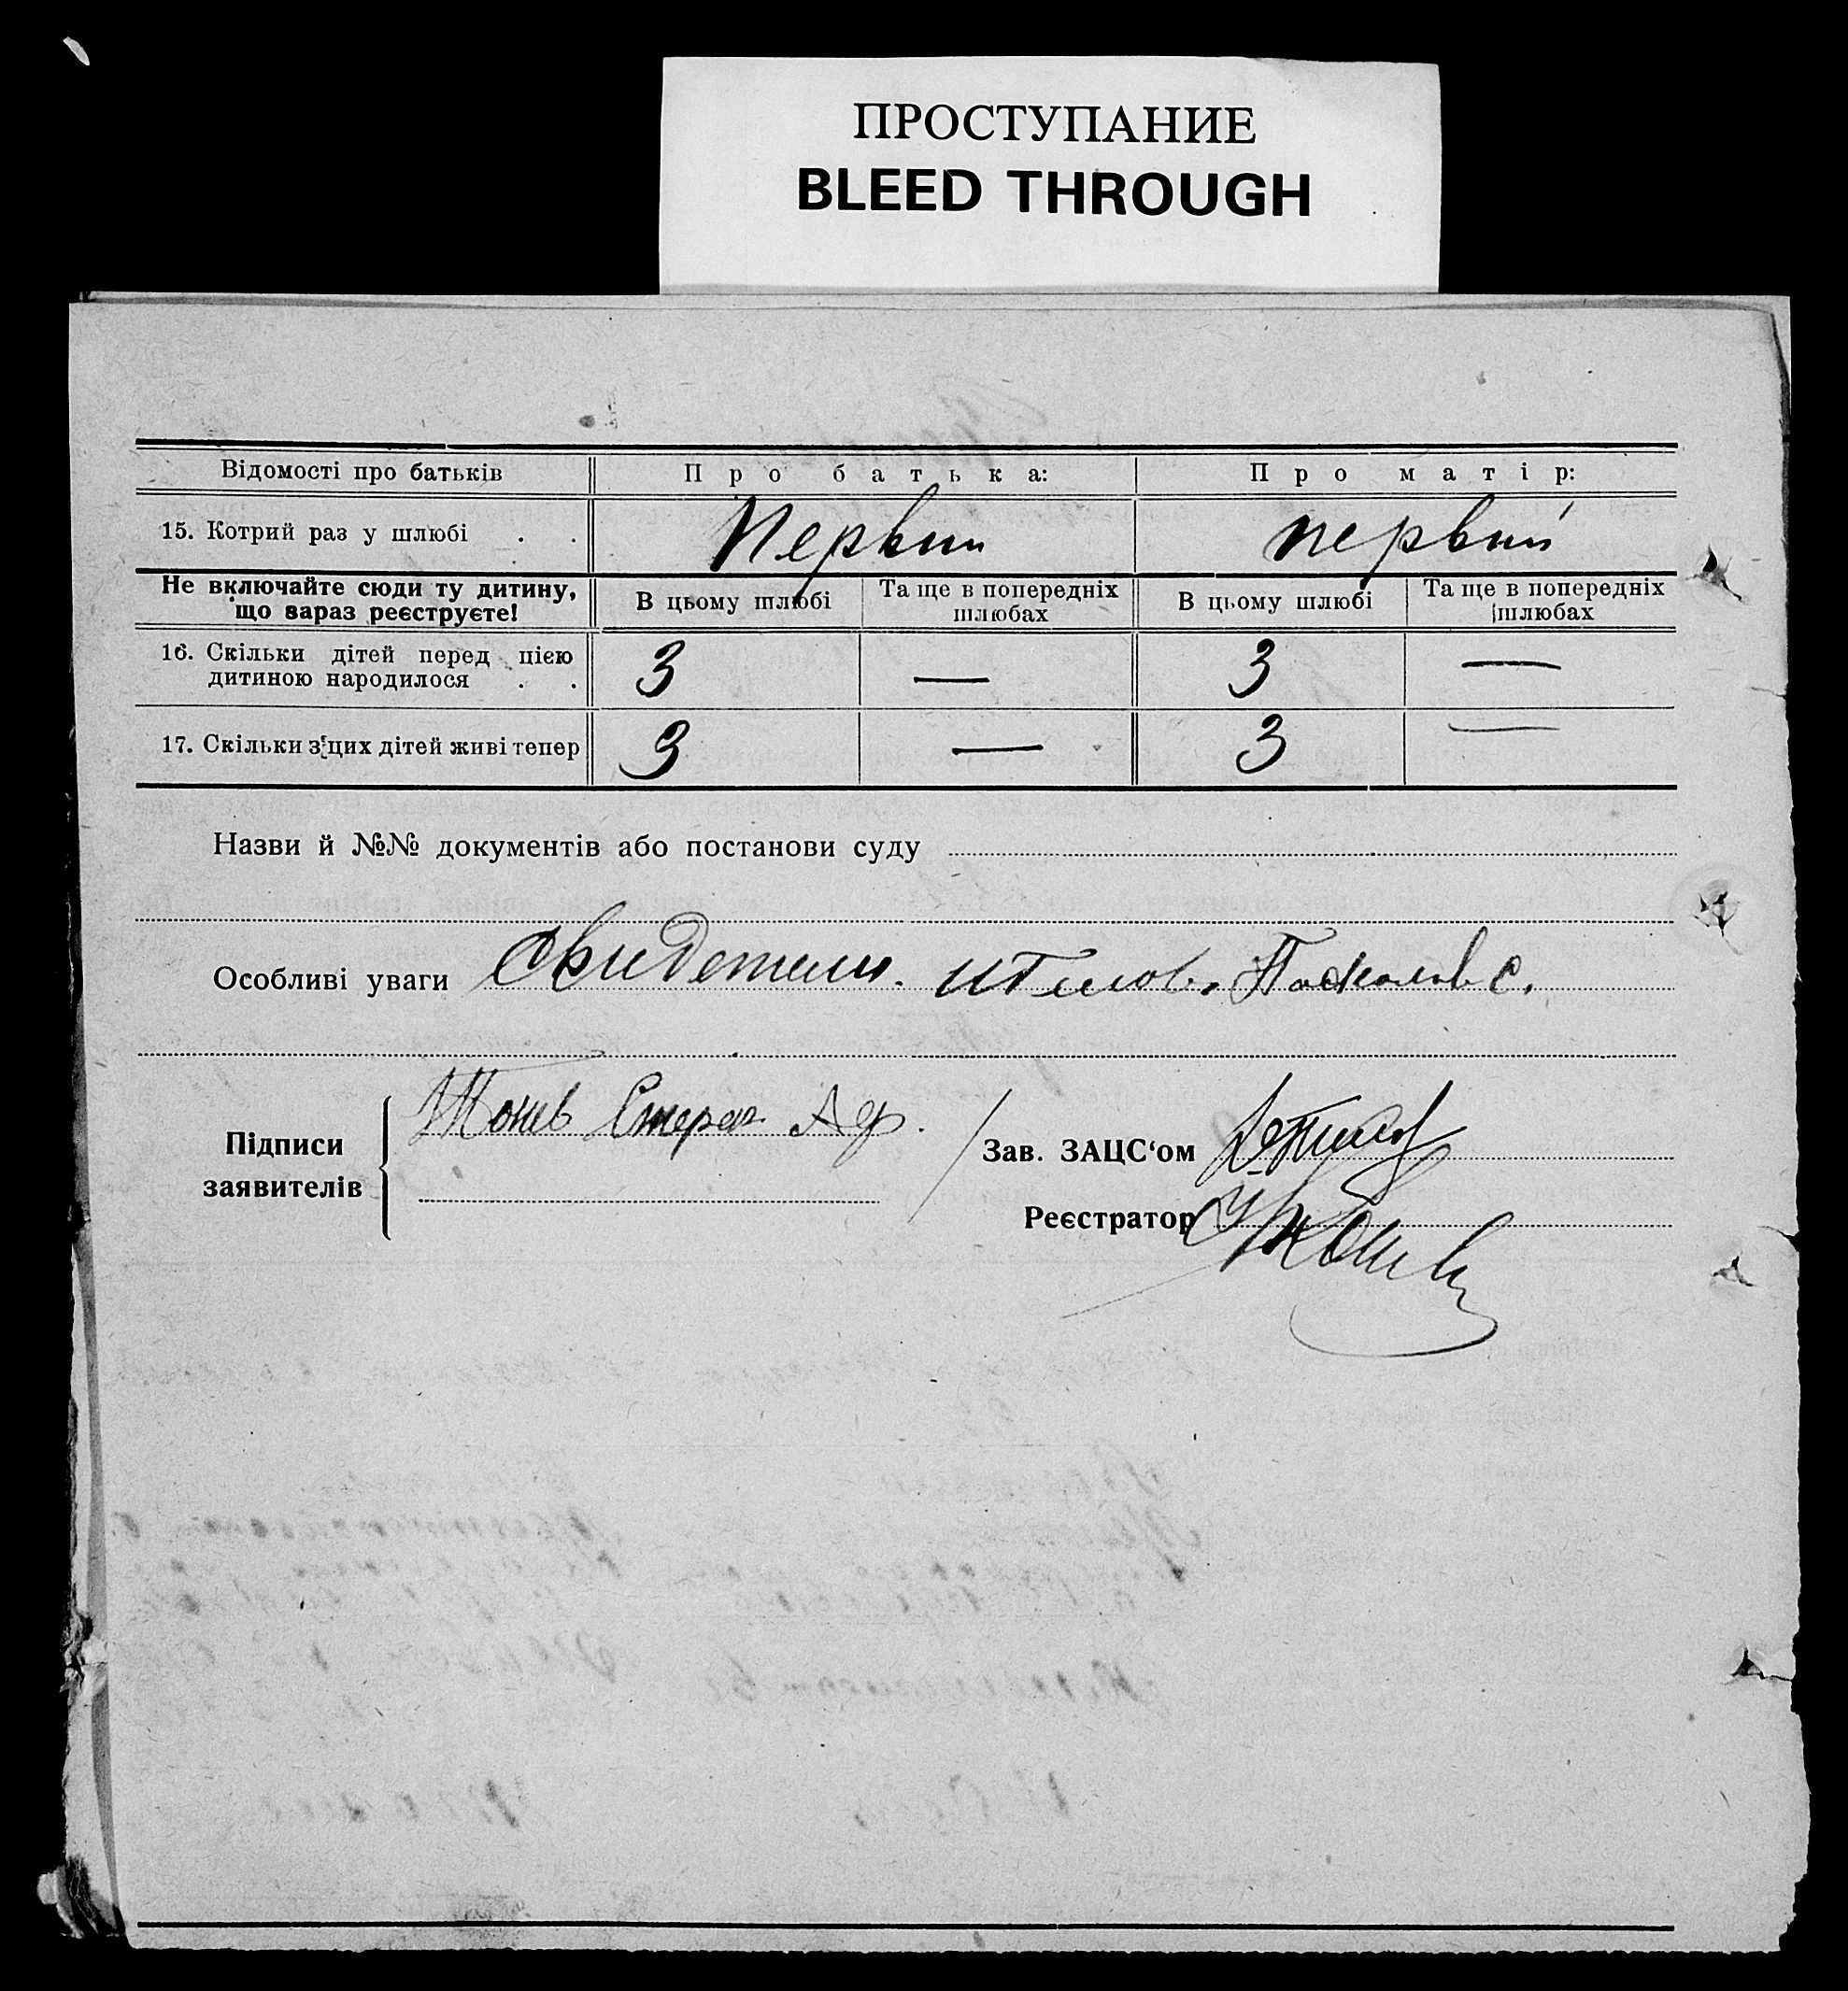 ПРОСТУПАНИЕ
BLEED THROUGH
Відомості про батьків Про батька: Про матір:
15. Котрий раз у шлюбі . . Первии первий
Не включайте сюди ту дитину, що зараз реєструєте! В цьому шлюбі Та ще в попередніх шлюбах В цьому шлюбі Та ще в попередніх шлюбах
16. Скільки дітей перед цією дитиною народилося . . 3 — 3 —
17. Скільки з цих дітей живі тепер 3 — 3 —
Назви й №№ документів або постанови суду
Особливі уваги Свидетели.
Підписи заявителів
Зав. ЗАЦС‘ом
Реєстратор